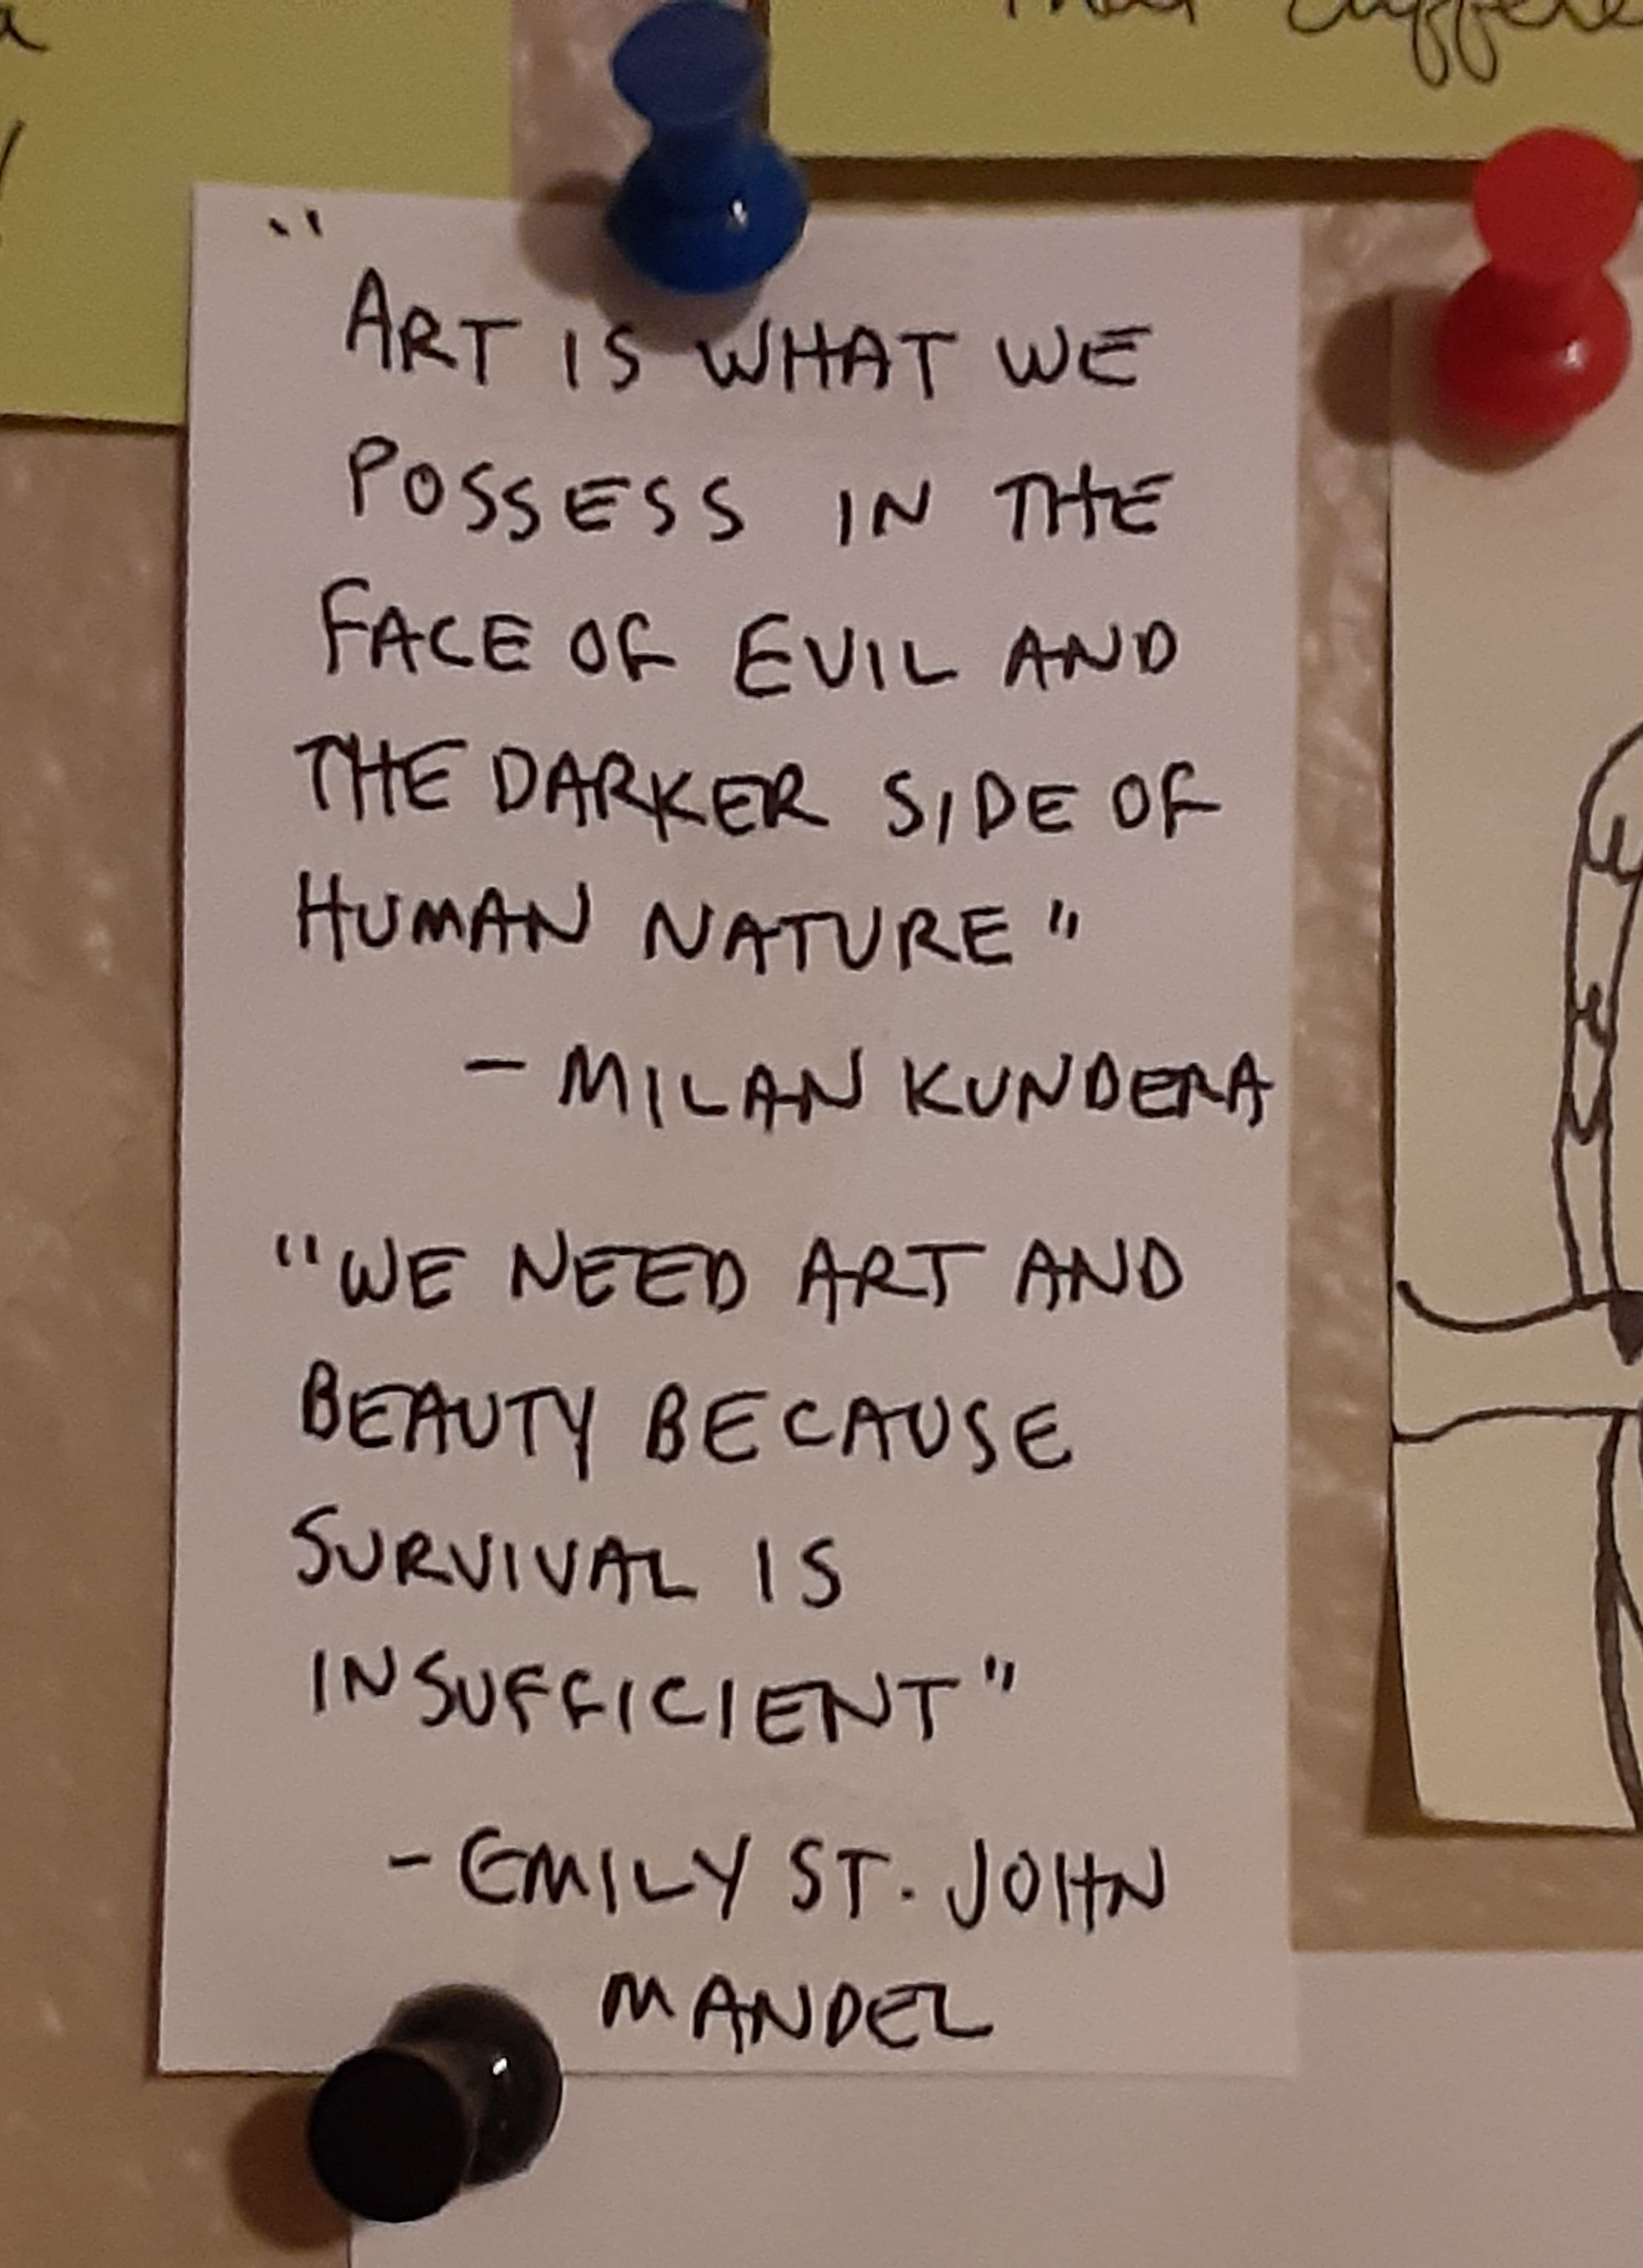 "
ART IS WHAT WE
POSSESS IN THE
FACE OF EVIL AND
THE DARKER SIDE OF
HUMAN NATURE"
- MILAN KUNDERA
"WE NEED ART AND
BEAUTY BECAUSE
SURVIVAL IS
INSUFFICIENT"
- EMILY ST. JOHN
MANDEL